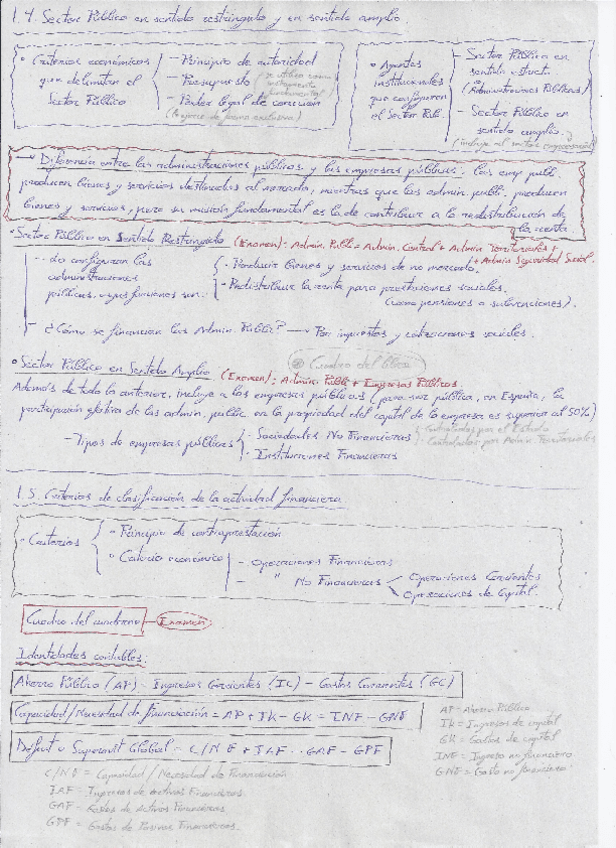 1.4. Sector Público en sentido restringido y en sentido amplio.
• Criterios económicos que delimitan el Sector Público
- Principio de autoridad
- Presupuesto (se utiliza como instrumento fundamental)
- Poder legal de coacción
(de forma exclusiva)
• Agentes institucionales que configuran el Sector Púb.
- Sector Público en sentido estricto (Administraciones Públicas)
- Sector Público en sentido amplio.
(incluye al sector empresarial)
→ Diferencia entre las administraciones públicas y las empresas públicas: las emp. públ.
producen bienes y servicios destinados al mercado, mientras que las admin. públ. producen
bienes y servicios, pero su misión fundamental es la de contribuir a la redistribución de
la renta.
• Sector Público en Sentido Restringido (Examen): Admin. Públ = Admin. Central + Admin Territoriales +
+ Admin Seguridad Social.
- Lo configuran las
administraciones
públicas, cuyas funciones son:
- Producir bienes y servicios de no mercado.
- Redistribuir la renta para prestaciones sociales.
(como pensiones o subvenciones).
- ¿Cómo se financian las Admin. Públ.? → Por impuestos y cotizaciones sociales.
Cuadro del libro
• Sector Público en Sentido Amplio (Examen): Admin. Públ + Empresas Públicas.
Además de todo lo anterior, incluye a las empresas públicas (para ser pública, en España, la
participación efectiva de las admin. públic en la propiedad del capital de la empresa es superior al 50%)
- Tipos de empresas públicas
- Sociedades No Financieras
- Controladas por el Estado
- Controladas por Admin Territoriales
- Instituciones Financieras
1.5. Criterios de clasificación de la actividad financiera
- Criterios
• Principio de contraprestación
• Criterio económico
- Operaciones Financieras
- " No Financieras
Operaciones Corrientes
Operaciones de Capital.
Cuadro del cuaderno - Examen
Identidades contables:
Ahorro Público (AP) = Ingresos Corrientes (IC) - Gastos Corrientes (GC)
Capacidad/Necesidad de financiación = AP + IK - GK = INF - GNF
Déficit o Superávit Global = C/NF + IAF - GAF - GPF
AP = Ahorro Público
IK = Ingresos de capital
GK = Gastos de capital
INF = Ingreso no financiero
GNF = Gasto no financiero
C/NF = Capacidad / Necesidad de Financiación
IAF = Ingresos de Activos Financieros.
GAF = Gastos de Activos Financieros.
GPF = Gastos de Pasivos Financieros.